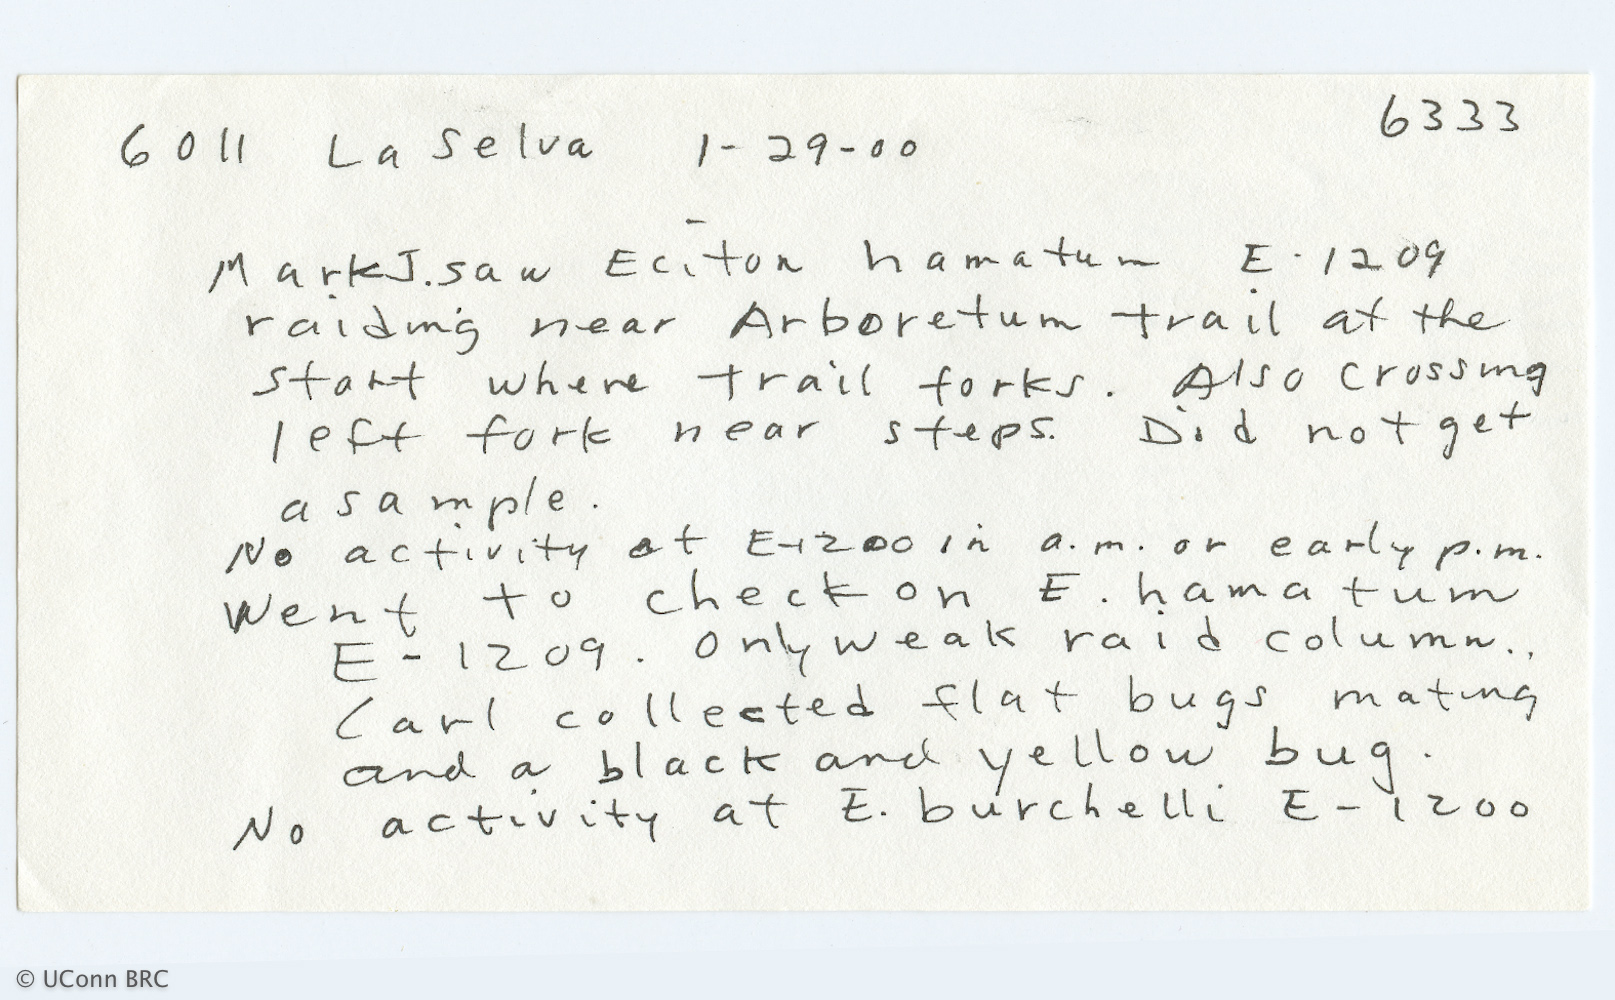 6333
6011 La Selva 1-29-00
Mark J. saw Eciton hamatum E-1209
raiding near Arboretum trail at the
start where trail forks. Also crossing
left fork near steps. Did not get
a sample.
No activity at E-1200 in a.m. or early p.m.
Went to check on E. hamatum
E-1209. Only weak raid column..
Carl collected flat bugs mating
and a black and yellow bug.
No activity at E. burchelli E-1200
© UConn BRC